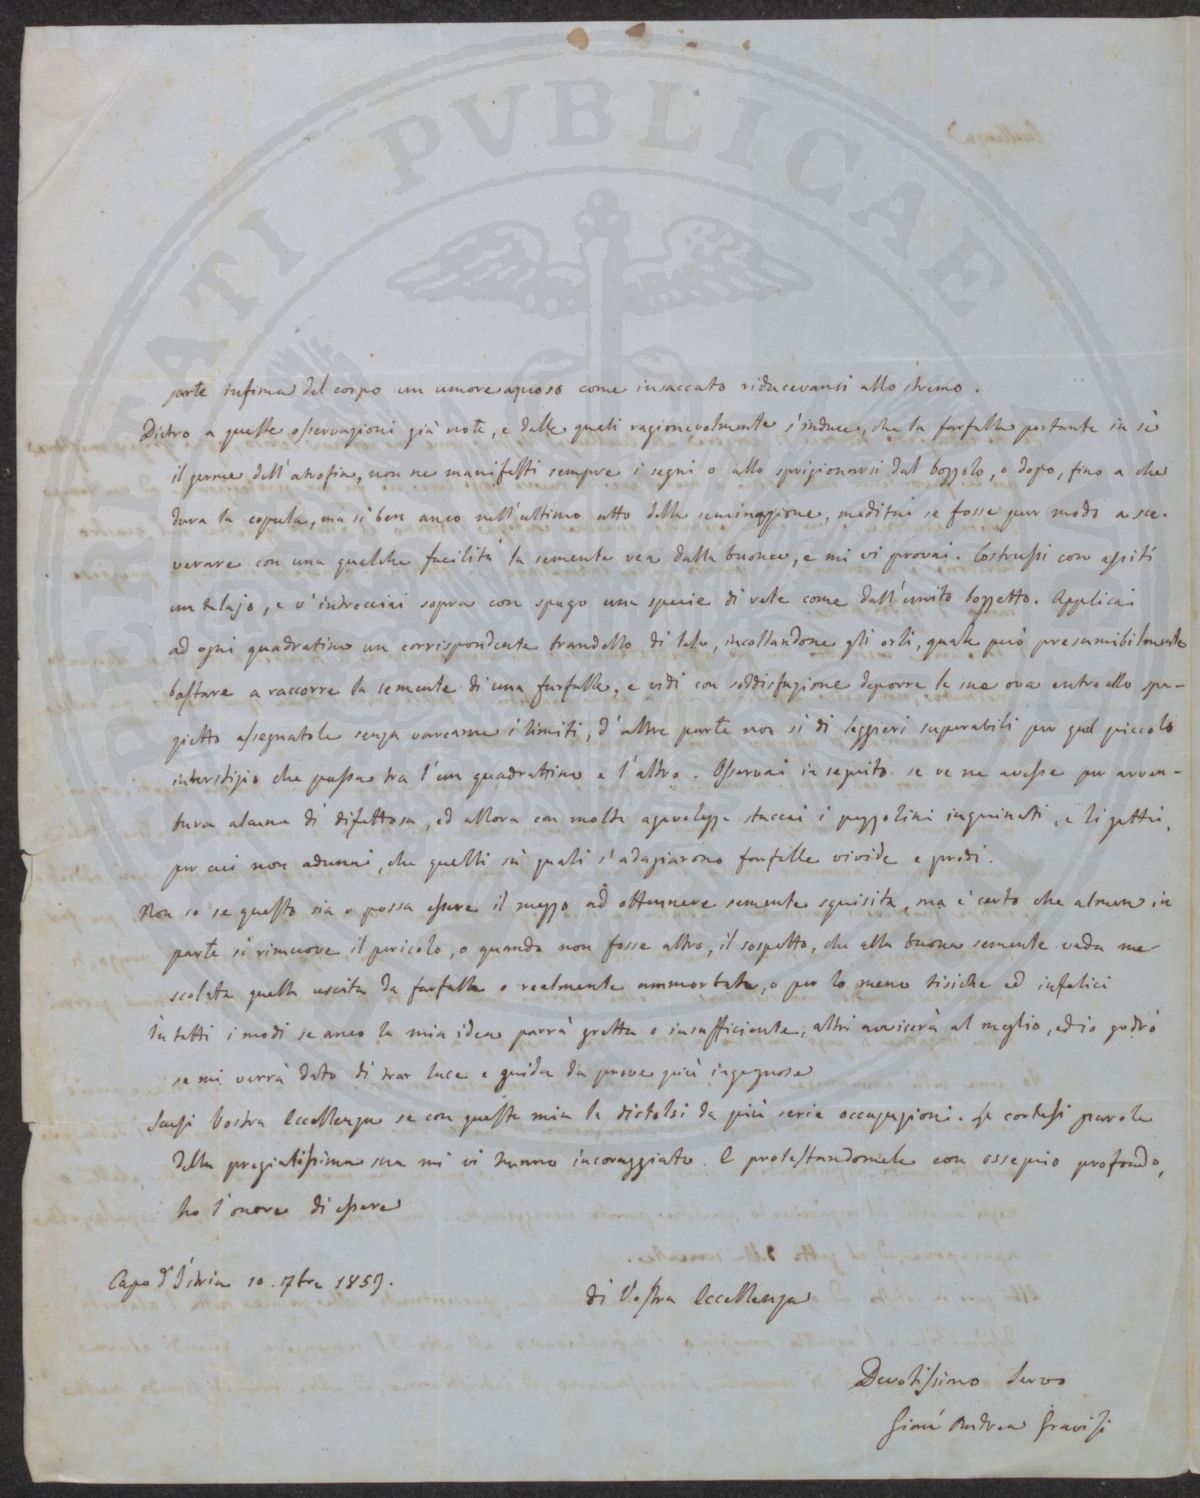 PROSPERITATI PVBLICAE AVGENDAE
parte infima del corpo un umore aquoso come insaccato riducevansi allo stremo.
Dietro a queste osservazioni già note, e dalle quali ragionevolmente s'induce, che la farfalla portante in sè
il germe dell'atrofia, non ne manifesti sempre i segni o allo sprigionarsi dal bozzolo, o dopo, fino a che
dura la copula, ma sì ben anco nell'ultimo atto della seminazione, meditai se fosse pur modo a sce-
verare con una qualche facilità la semente rea dalla buona, e mi vi provai. Costrussi con assiti
un telajo, e v'intrecciai sopra con spago una specie di rete come dall'unito bozzetto. Applicai
ad ogni quadratino un corrispondente brandello di tela, incollandone gli orli, quale può presumibilmente
bastare a raccorre la semente di una farfalla, e vidi con soddisfazione deporre le sue ova entro allo spa-
zietto assegnatole senza varcarne i limiti, d'altra parte non sì di leggieri superabili per quel piccolo
interstizio che passa tra l'un quadrattino e l'altro. Osservai in seguito se ve ne avesse per avven-
tura alcuna di difettosa, ed allora con molta agevolezza staccai i pezzolini inquinati, e li gettai,
per cui non adunai, che quelli su quali s'adagiarono farfalle vivide e prodi.
Non so se questo sia o possa essere il mezzo ad ottennere semente squisita, ma è certo che almen in
parte si rimuove il pericolo, o quando non fosse altro, il sospetto, che alla buona semente vada me-
scolata quella uscita da farfalle o realmente ammorbate, o per lo meno tisiche ed infelici
In tutti i modi se anco la mia idea parrà gretta o insufficiente, altri avviserà al meglio, ed io godrò
se mi verrà dato di trar luce e guida da prove più ingegnose
Scusi Vostra Eccellenza se con questa mia la distolsi da più serie occupazioni. Le cortesi parole
della pregiatissima sua mi vi hanno incoraggiato. E protestandomele con ossequio profondo,
ho l'onore di essere
Capo d'Istria 10. 7bre 1859.
di Vostra Eccellenza
Devotissimo Servo
Gian Andrea Gravisi